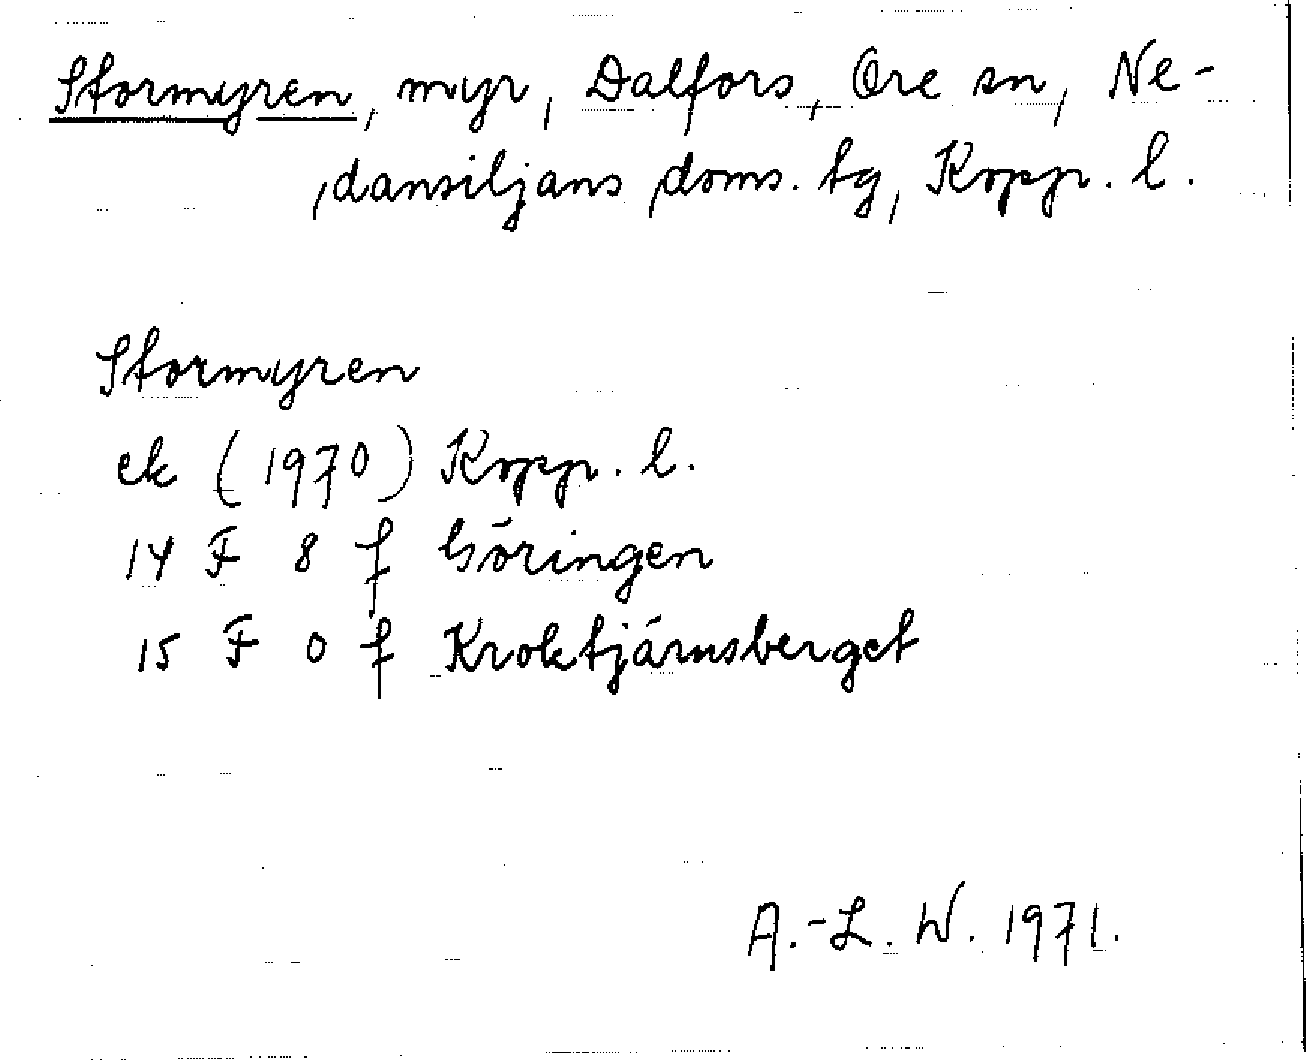 Stormyren, myr, Dalfors, Ore sn, Ne-
dansiljans doms. tg, Kopp. l.
Stormyren
ek (1970) Kopp. l.
14 F 8 f Göringen
15 F 0 f Kroktjärnsberget
A.-L. W. 1971.